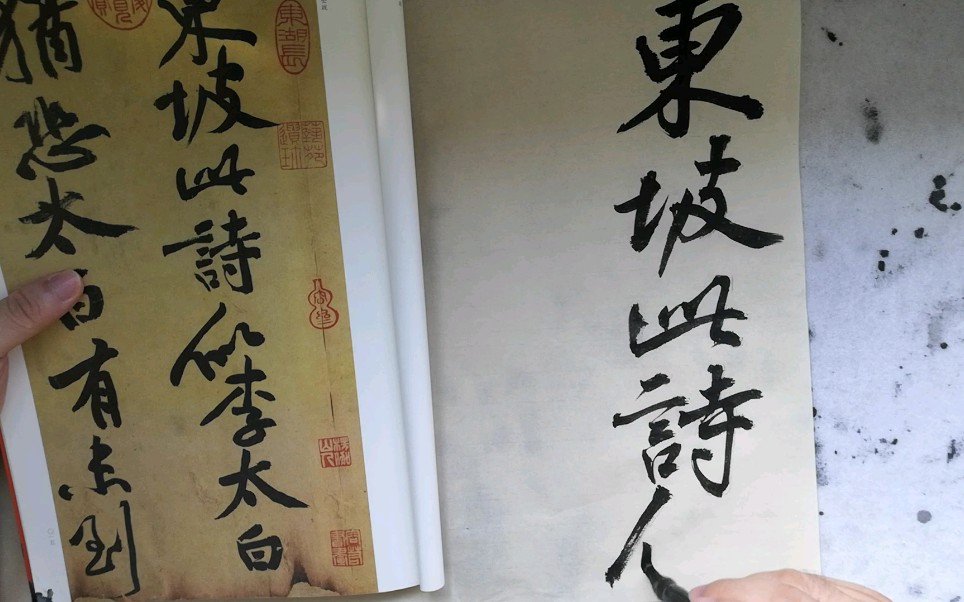 東坡此詩
東湖長
東坡此詩似李太白
猶恐太白有未到